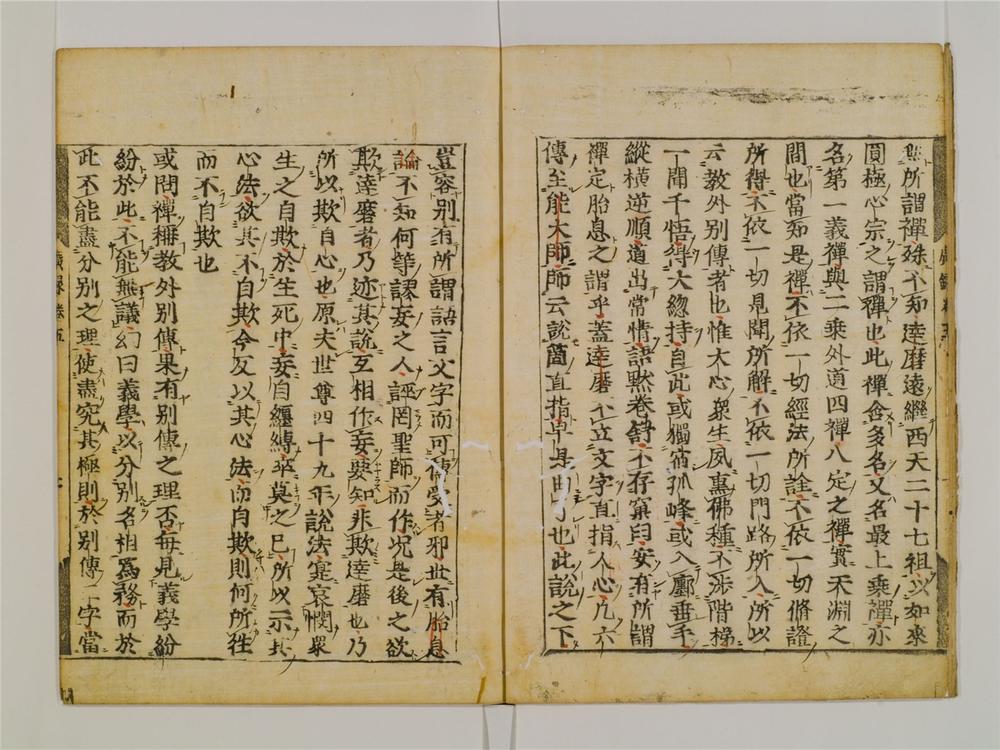 所謂禪殊不知達磨遠繼西天二十七祖以如來
圓極心宗之謂禪也此禪含多名又名最上乘禪亦
名第一義禪與二乘外道四禪八定之禪實天淵之
間也當知是禪不依一切經法所詮不依一切修證
所得不依一切見聞所解不依一切門路所入所以
云教外別傳者也惟大心衆生夙熏佛種不涉階梯
一聞千悟得大緫持自此或獨宿孤峰或入鄽垂手
縱橫逆順道出常情語默卷舒不存窠臼安有所謂
禪定胎息之謂乎蓋達磨不立文字直指人心凡六
傳至能大師師云說箇直指早是曲了也此說之下
豈容别有所謂語言文字而可傳受者邪世有胎息
論不知何等謬妄之人誣罔聖師而作況是後之欲
欺達磨者乃迹其說互相作妄要知非欺達磨也乃
所以欺自心也原夫世尊四十九年說法寔哀憫衆
生之自欺於生死中妄自纏縛卒莫之已所以示其
心法欲其不自欺今反以其心法而自欺則何所往
而不自欺也
或問禪稱教外别傳果有别傳之理否每見義學紛
紛於此不能無議幻曰義學以分别名相爲務而於
此不能盡分别之理使盡究其極則於别傳二字當
廣録卷五